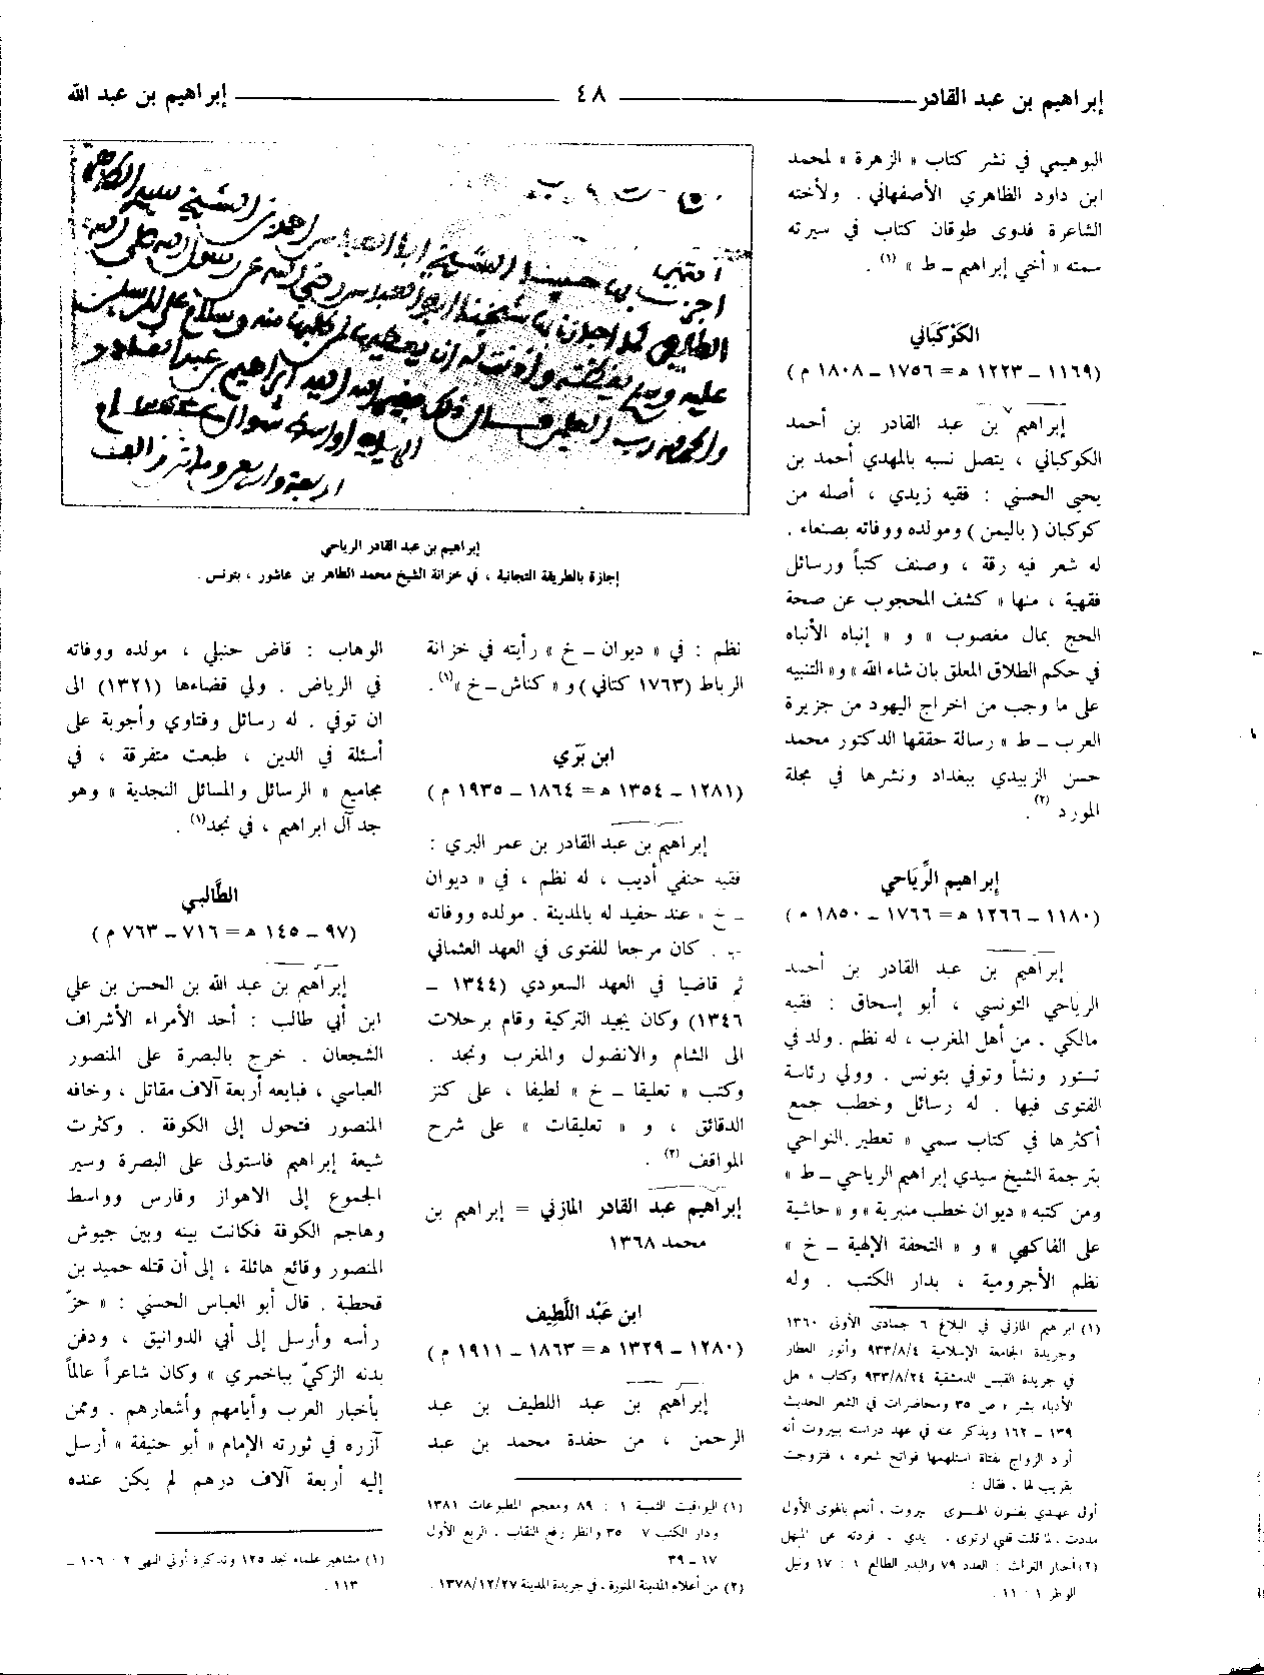 إبراهيم بن عبد القادر ٤٨ إبراهيم بن عبد الله
البوهيمي في نشر كتاب « الزهرة » لمحمد
ابن داود الظاهري الأصفهاني . ولأخته
الشاعرة فدوى طوقان كتاب في سيرته
سمته « أخي إبراهيم ــ ط » (١) .
الكَوْكَباني
(١١٦٩ ــ ١٢٢٣ ه = ١٧٥٦ ــ ١٨٠٨ م)
إبراهيم بن عبد القادر بن أحمد
الكوكباني ، يتصل نسبه بالمهدي أحمد بن
يحيى الحسني : فقيه زيدي ، أصله من
كوكبان ( باليمن ) ومولده ووفاته بصنعاء .
له شعر فيه رقة ، وصنف كتباً ورسائل
فقهية ، منها « كشف المحجوب عن صحة
الحج بمال مغصوب » و « إنباه الأنباه
في حكم الطلاق المعلق بان شاء الله » و« التنبيه
على ما وجب من اخراج اليهود من جزيرة
العرب ــ ط » رسالة حققها الدكتور محمد
حسن الزبيدي ببغداد ونشرها في مجلة
المورد (٢) .
إبراهيم الرِّيَاحي
(١١٨٠ ــ ١٢٦٦ ه = ١٧٦٦ ــ ١٨٥٠ م)
إبراهيم بن عبد القادر بن أحمد
الرياحي التونسي ، أبو إسحاق : فقيه
مالكي . من أهل المغرب ، له نظم . ولد في
تستور ونشأ وتوفي بتونس . وولي رئاسة
الفتوى فيها . له رسائل وخطب جمع
أكثرها في كتاب سمي « تعطير النواحي
بترجمة الشيخ سيدي إبراهيم الرياحي ــ ط »
ومن كتبه « ديوان خطب منبرية » و « حاشية
على الفاكهي » و « التحفة الإلهية ــ خ »
نظم الأجرومية ، بدار الكتب . وله
(١) ابرهيم المازني في البلاغ ٦ جمادى الأولى ١٣٦٠
وجريدة الجامعة الإسلامية ٩٣٣/٨/٤ وأنور العطار
في جريدة القبس الدمشقية ٩٣٣/٨/٢٤ وكتاب « هل
الأدباء بشر » ص ٣٥ ومحاضرات في الشعر الحديث
١٣٩ ــ ١٦٢ ويذكر عنه في عهد دراسته ببيروت أنه
أراد الزواج بفتاة استلهمها فواتح شعره ، فتزوجت
بقريب لها . فقال :
أول عهدي بفنون الهوى بيروت . أنعم بالهوى الأول
مددت . لما قلت قلبي ارتوى . يدي . فردته عن المنهل
(٢) أخبار التراث : العدد ٧٩ والبدر الطالع ١ : ١٧ ونيل
الوطر ١ : ١١ .
إبراهيم بن عبد القادر الرياحي
إجازة بالطريقة التجانية ، في خزانة الشيخ محمد الطاهر بن عاشور ، بتونس .
نظم : في « ديوان ــ خ » رأيته في خزانة
الرباط (١٧٦٣ كتاني) و « كناش ــ خ »(١) .
ابن بَرّي
(١٢٨١ ــ ١٣٥٤ ه = ١٨٦٤ ــ ١٩٣٥ م)
إبراهيم بن عبد القادر بن عمر البري :
فقيه حنفي أديب ، له نظم ، في « ديوان
ــ خ » عند حفيد له بالمدينة . مولده ووفاته
بها . كان مرجعا للفتوى في العهد العثماني
ثم قاضيا في العهد السعودي (١٣٤٤ ــ
١٣٤٦) وكان يجيد التركية وقام برحلات
الى الشام والانضول والمغرب ونجد .
وكتب « تعليقا ــ خ » لطيفا ، على كنز
الدقائق ، و « تعليقات » على شرح
المواقف (٢) .
إبراهيم عبد القادر المازني = إبراهيم بن
محمد ١٣٦٨
ابن عَبْد اللَّطِيف
(١٢٨٠ ــ ١٣٢٩ ه = ١٨٦٣ ــ ١٩١١ م)
إبراهيم بن عبد اللطيف بن عبد
الرحمن ، من حفدة محمد بن عبد
(١) اليواقيت الثمينة ١ : ٨٩ ومعجم المطبوعات ١٣٨١
ودار الكتب ٧ ٣٥ وانظر رفع النقاب . الربع الأول
١٧ ــ ٣٩
(٢) من أعلام المدينة المنورة . في جريدة المدينة ١٣٧٨/١٢/٢٧ .
الوهاب : قاض حنبلي ، مولده ووفاته
في الرياض . ولي قضاءها (١٣٢١) الى
ان توفي . له رسائل وفتاوي وأجوبة على
أسئلة في الدين ، طبعت متفرقة ، في
مجاميع « الرسائل والمسائل النجدية » وهو
جد آل ابراهيم ، في نجد(١) .
الطَّالبي
(٩٧ ــ ١٤٥ ه = ٧١٦ ــ ٧٦٣ م)
إبراهيم بن عبد الله بن الحسن بن علي
ابن أبي طالب : أحد الأمراء الأشراف
الشجعان . خرج بالبصرة على المنصور
العباسي ، فبايعه أربعة آلاف مقاتل ، وخافه
المنصور فتحول إلى الكوفة . وكثرت
شيعة إبراهيم فاستولى على البصرة وسير
الجموع إلى الاهواز وفارس وواسط
وهاجم الكوفة فكانت بينه وبين جيوش
المنصور وقائع هائلة ، إلى أن قتله حميد بن
قحطبة . قال أبو العباس الحسني : « حزّ
رأسه وأرسل إلى أبي الدوانيق ، ودفن
بدنه الزكيّ بباخمري » وكان شاعراً عالماً
بأخبار العرب وأيامهم وأشعارهم . وممن
آزره في ثورته الإمام « أبو حنيفة » أرسل
إليه أربعة آلاف درهم لم يكن عنده
(١) مشاهير علماء نجد ١٢٥ وتذكرة أولي النهى ٢ : ١٠٦ ــ
١١٣ .